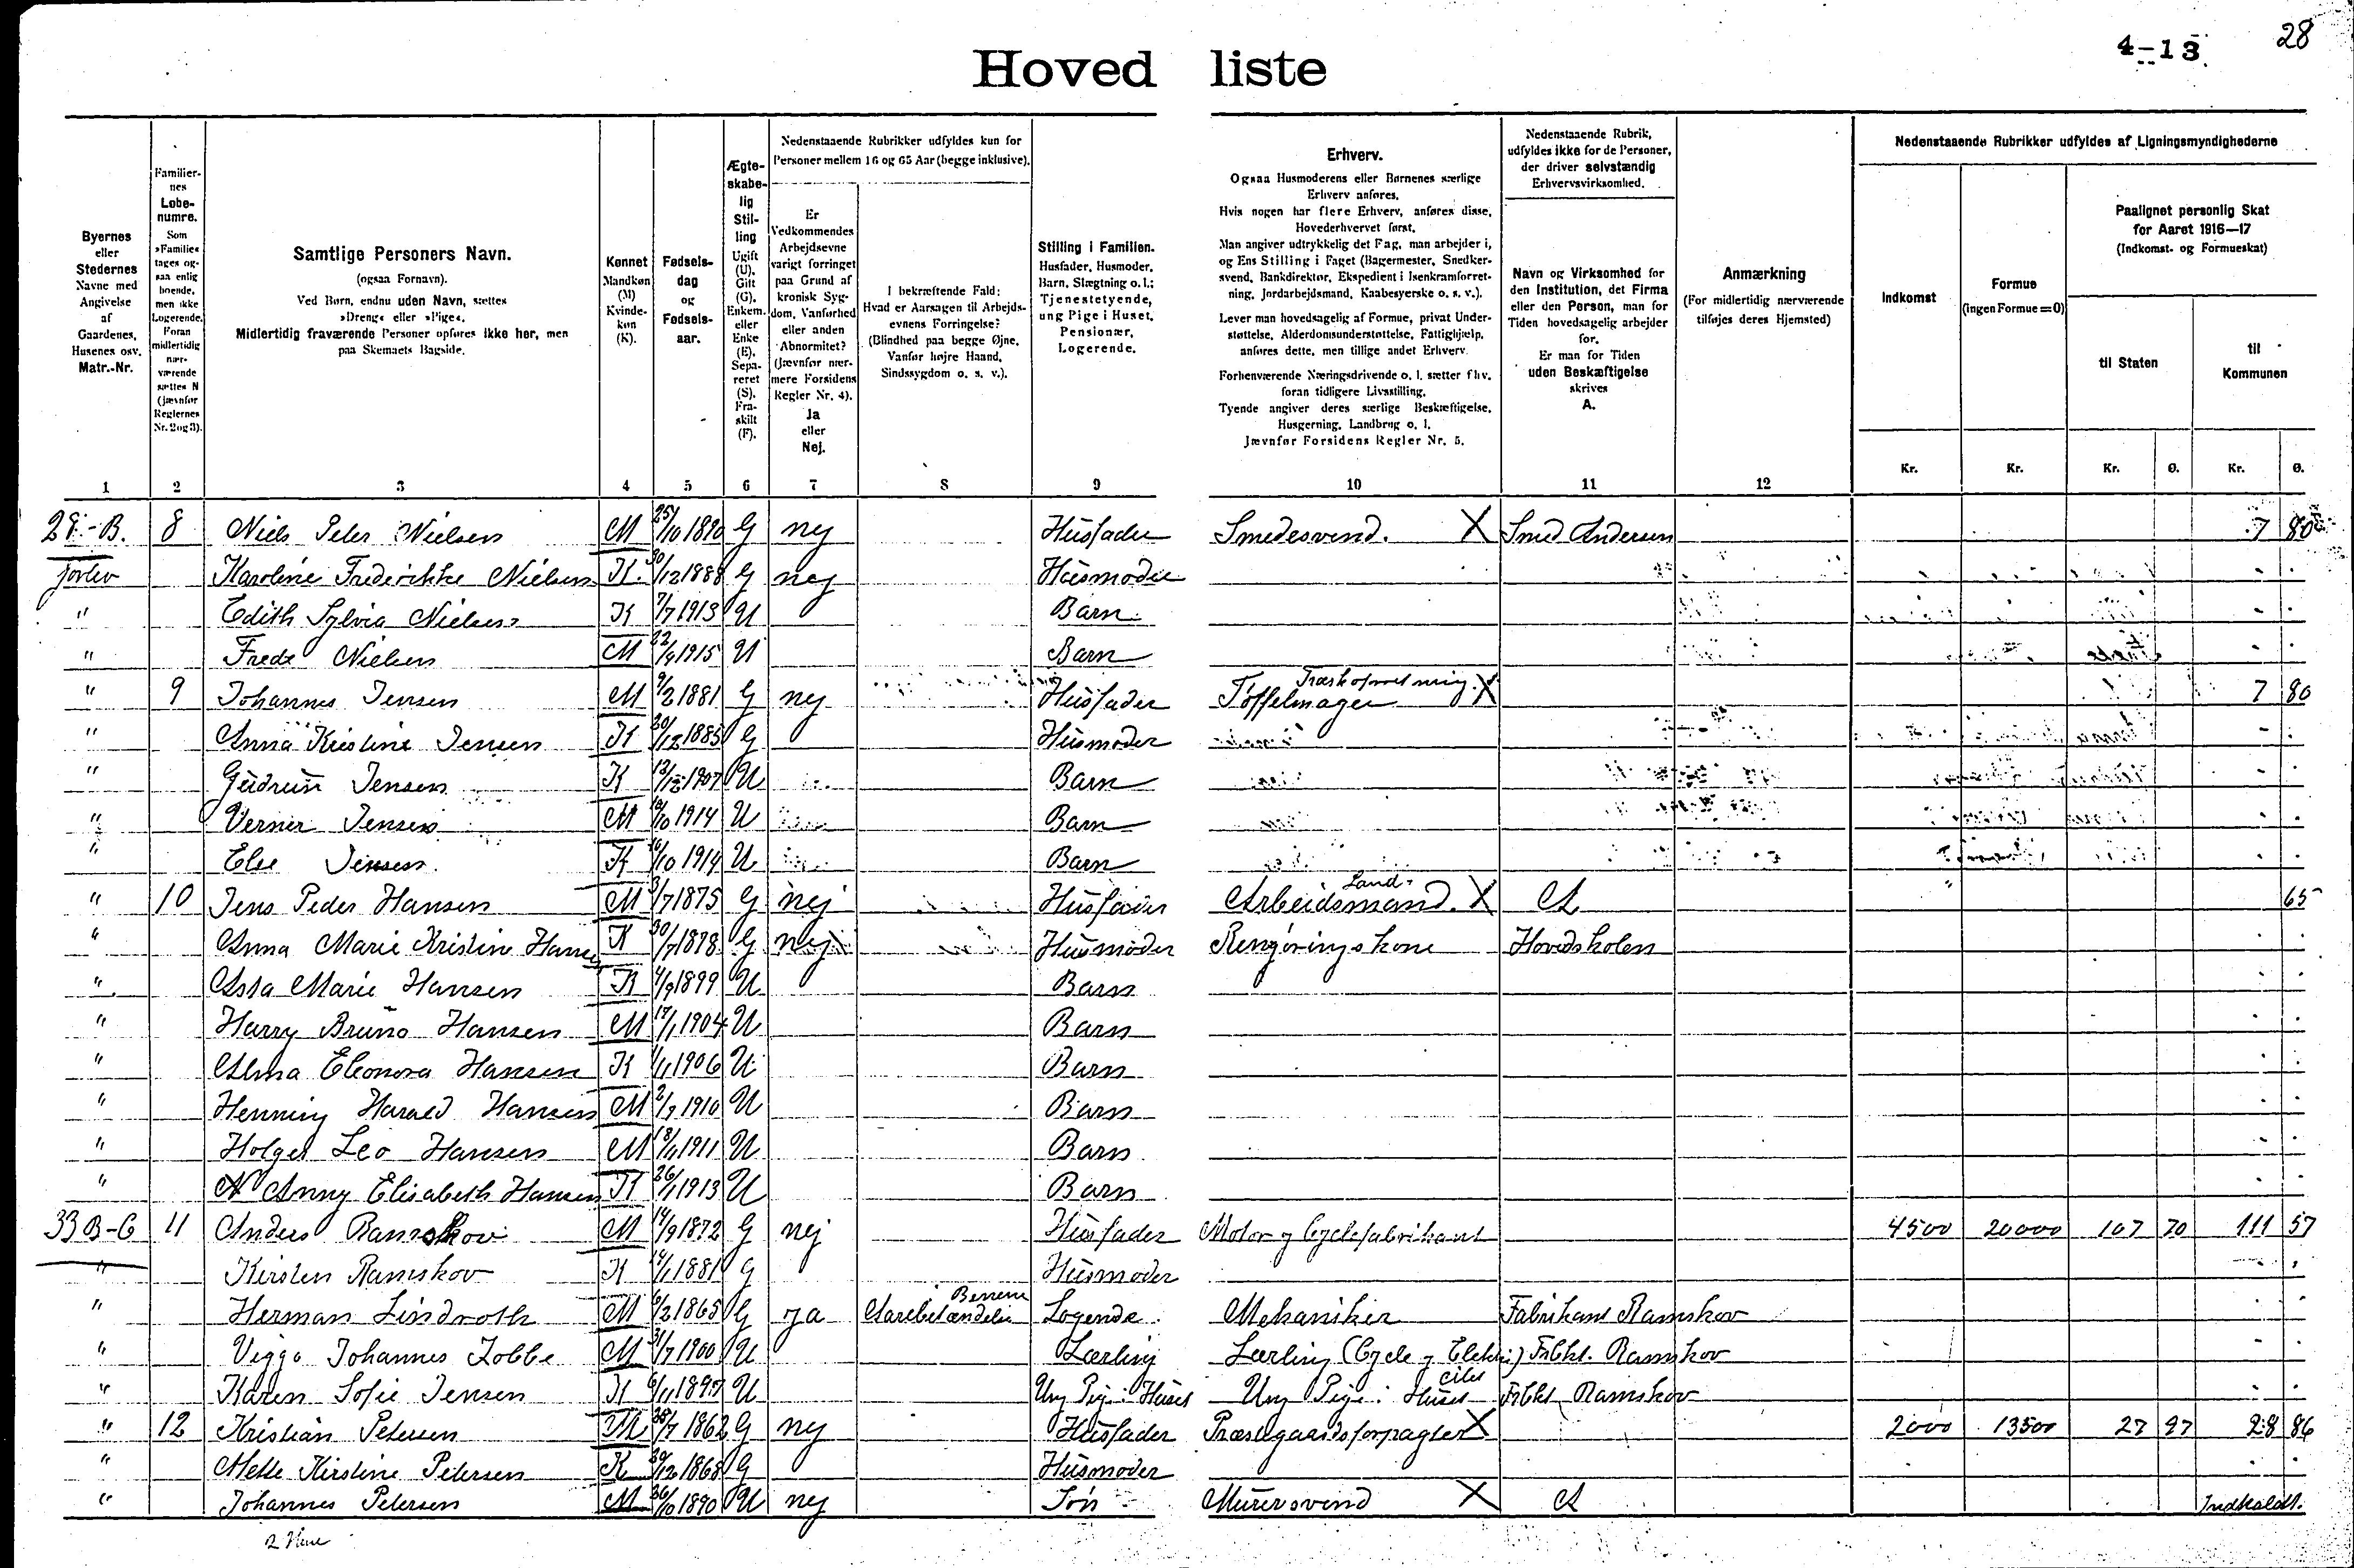 Hoved liste
4-13
28
Byernes
eller
Stedernes
Navne med
Angivelse
af
Gaardenes,
Husenes osv.
Matr.-Nr.
Familier-
nes
Løbe-
numre.
Som
»Familie«
tages og-
saa enlig
boende,
men ikke
Logerende.
Foran
midlertidig
nær-
værende
sættes N
(jævnfør
Reglernes
Nr. 2 og 3).
Samtlige Personers Navn.
(ogsaa Fornavn).
Ved Børn, endnu uden Navn, sættes
»Dreng« eller »Pige«.
Midlertidig fraværende Personer opføres ikke her, men
paa Skemaets Bagside.
Kønnet
Mandkøn
(M)
Kvinde-
køn
(K).
Fødsels-
dag
og
Fødsels-
aar.
Ægte-
skabe-
lig
Stil-
ling
Ugift
(U).
Gift
(G).
Enkem.
eller
Enke
(E).
Sepa-
reret
(S).
Fra-
skilt
(F).
Nedenstaaende Rubrikker udfyldes kun for
Personer mellem 16 og 65 Aar (begge inklusive).
Er
Vedkommendes
Arbejdsevne
varigt forringet
paa Grund af
kronisk Syg-
dom, Vanførhed
eller anden
Abnormitet?
(Jævnfør nær-
mere Forsidens
Regler Nr. 4).
Ja
eller
Nej.
I bekræftende Fald:
Hvad er Aarsagen til Arbejds-
evnens Forringelse?
(Blindhed paa begge Øjne,
Vanfør højre Haand,
Sindssygdom o. s. v.).
Stilling i Familien.
Husfader, Husmoder,
Barn, Slægtning o. l.;
Tjenestetyende,
ung Pige i Huset,
Pensionær,
Logerende.
Erhverv.
Ogsaa Husmoderens eller Børnenes særlige
Erhverv anføres.
Hvis nogen har flere Erhverv, anføres disse,
Hovederhvervet først.
Man angiver udtrykkelig det Fag, man arbejder i,
og Ens Stilling i Faget (Bagermester, Snedker-
svend, Bankdirektør, Ekspedient i Isenkramforret-
ning, Jordarbejdsmand, Kaabesyerske o. s. v.).
Lever man hovedsagelig af Formue, privat Under-
støttelse, Alderdomsunderstøttelse, Fattighjælp,
anføres dette, men tillige andet Erhverv.
Forhenværende Næringsdrivende o. l. sætter fhv.
foran tidligere Livsstilling.
Tyende angiver deres særlige Beskæftigelse,
Husgerning, Landbrug o. l.
Jævnfør Forsidens Regler Nr. 5.
Nedenstaaende Rubrik,
udfyldes ikke for de Personer,
der driver selvstændig
Erhvervsvirksomhed.
Navn og Virksomhed for
den Institution, det Firma
eller den Person, man for
Tiden hovedsagelig arbejder
for.
Er man for Tiden
uden Beskæftigelse
skrives
A.
Anmærkning
(For midlertidig nærværende
tilføjes deres Hjemsted)
Nedenstaaende Rubrikker udfyldes af Ligningsmyndighederne
Indkomst
Formue
(ingen Formue = 0)
Paalignet personlig Skat
for Aaret 1916—17
(Indkomst- og Formueskat)
til Staten
til
Kommunen
Kr. Kr. Kr. Ø. Kr. Ø.
1 2 3 4 5 6 7 8 9 10 11 12
28-B. 8 Niels Peter Nielsen M 25/10 1890 G nej Husfader Smedesvend. X Smed Andersen 7 80
Jorlev Karoline Frederikke Nielsen K. 30/12 1888 G nej Husmoder
" Edith Sylvia Nielsen K 7/7 1913 U Barn
" Frede Nielsen M 22/9 1915 U Barn
" 9 Johannes Jensen M 9/2 1881 G nej Husfader Tøffelmager Træskoforretning. X 7 80
" Anna Kristine Jensen K 20/12 1885 G Husmoder
" Gudrun Jensen K 13/12 1907 U Barn
" Verner Jensen M 10/10 1914 U Barn
" Else Jensen K 10/10 1914 U Barn
" 10 Jens Peder Hansen M 3/7 1875 G nej Husfader Land-Arbeidsmand. X A 65
" Anna Marie Kristine Hansen K 30/7 1878 G nej Husmoder Rengøringskone Hovedskolen
" Asta Marie Hansen K 4/9 1899 U Barn
" Harry Bruno Hansen M 17/1 1904 U Barn
" Alma Eleonora Hansen K 1/1 1906 U Barn
" Henning Harald Hansen M 2/9 1910 U Barn
" Holger Leo Hansen M 18/11 1911 U Barn
" Anny Elisabeth Hansen K 26/1 1913 U Barn
33 B-C 11 Anders Ramskov M 14/9 1872 G nej Husfader Motor og Cyclefabrikant 4500 20000 107 70 111 57
" Kirsten Ramskov K 14/1 1881 G Husmoder
" Herman Lindroth M 6/2 1865 G ja Aarebetændelse i Benene Logende Mekaniker Fabrikant Ramskov
" Viggo Johannes Kobbe M 31/7 1900 U Lærling Lærling (Cycle og Elektri) Fabkt. Ramskov
" Karen Sofie Jensen K 6/11 1897 U Ung Pige i Huset Ung Pige i Huset Fabkt Ramskov
" 12 Kristian Petersen M 28/7 1862 G nej Husfader Præstegaardsforpagter X 2000 13500 27 97 28 86
" Mette Kirstine Petersen K 20/12 1868 G Husmoder
" Johannes Petersen M 26/10 1890 U nej Søn Murersvend X A Indkaldt.